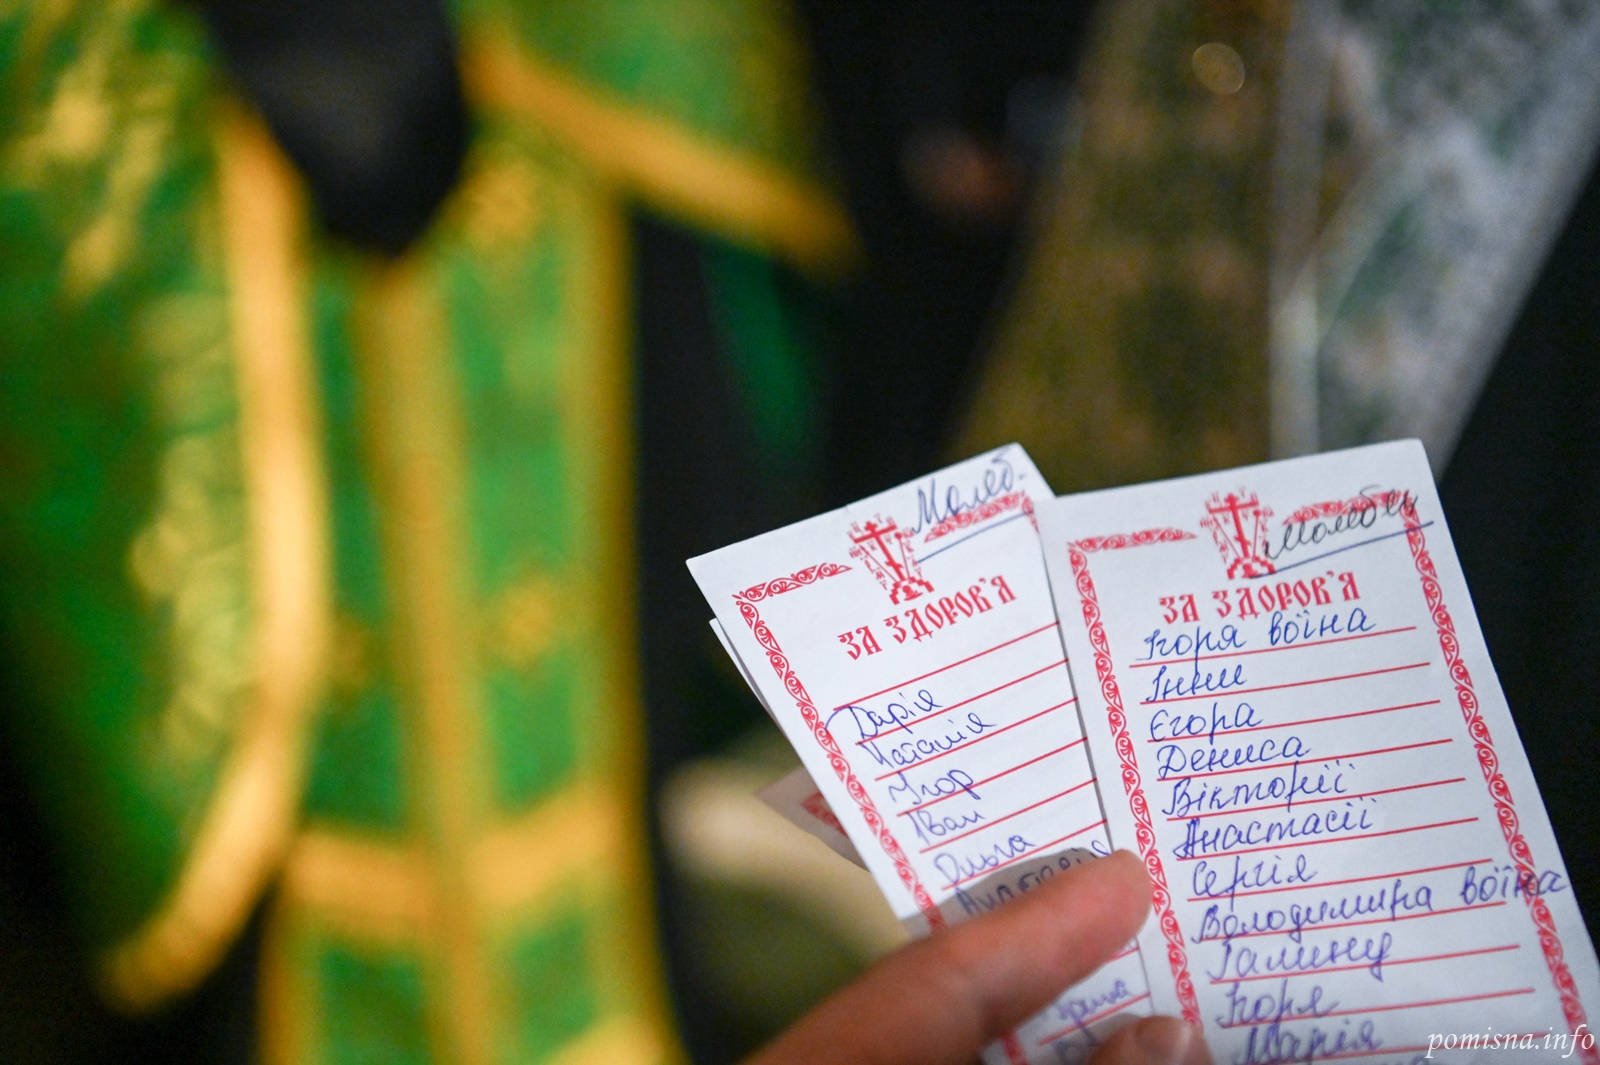 Молеб.
ЗА ЗДОРОВ'Я
Дарія
Наталія
Ігор
Іван
Ольга
Молебен
ЗА ЗДОРОВ'Я
Ігоря воїна
Інни
Єгора
Дениса
Вікторії
Анастасії
Сергія
Володимира воїна
Галину
Ігоря
Марія
pomisna.info